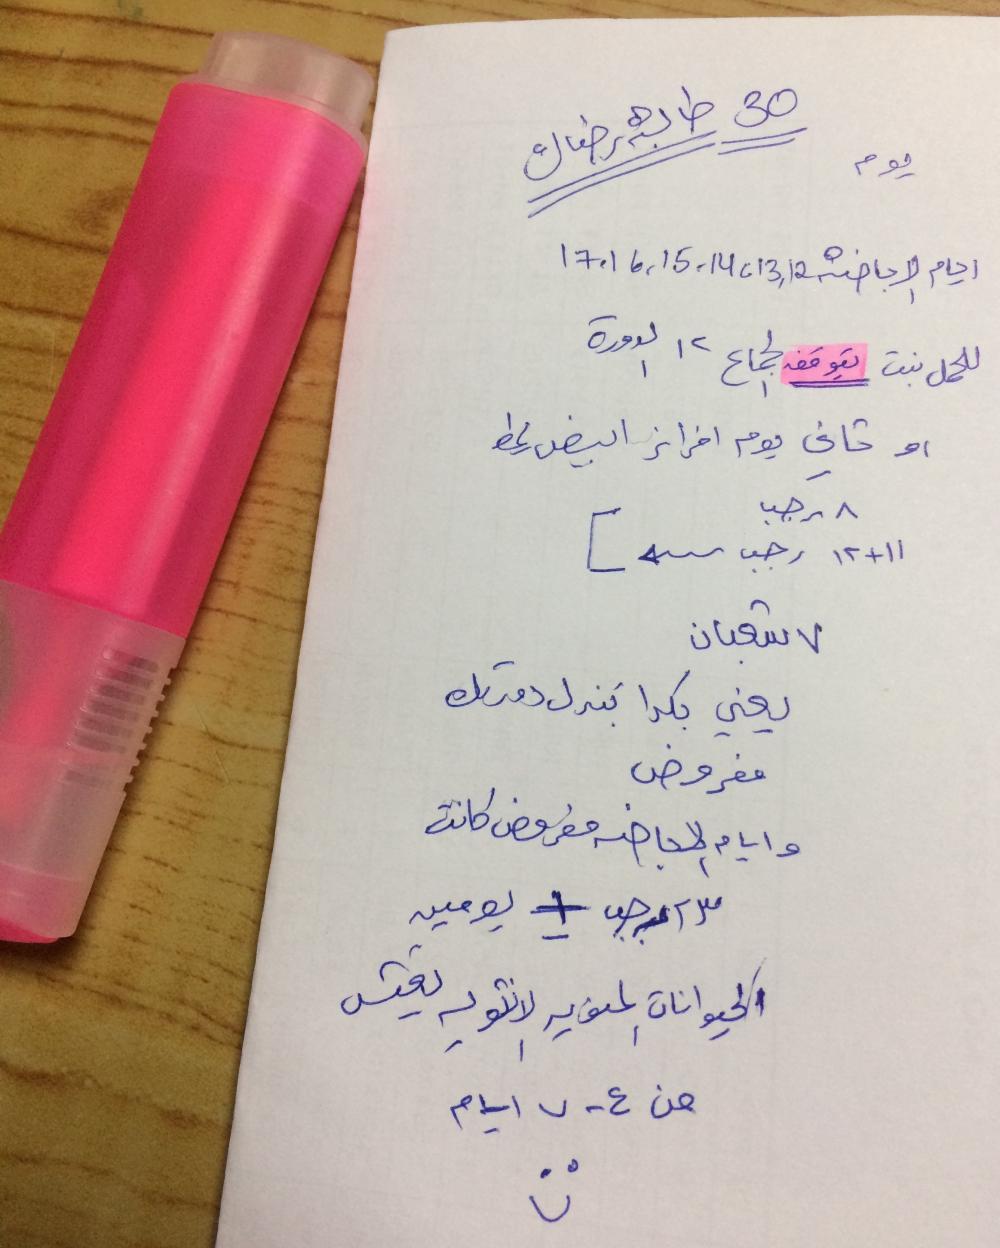 30
يوم
ايام الاباضة 12, 13، 14، 15، 16، 17
للحمل بنت يتوقف الجماع ١٢ الدورة
او ثاني يوم افراز البيض
٨ رجب
١١+١٢ رجب
٧ شعبان
يعني بكرا بتنزل دورتك
مفروض
وايام الاباضه مفروض كانت
٢٣ رجب + يومين
الحيوانات المنويه الانثويه تعيش
من ٤ - ٧ ايام